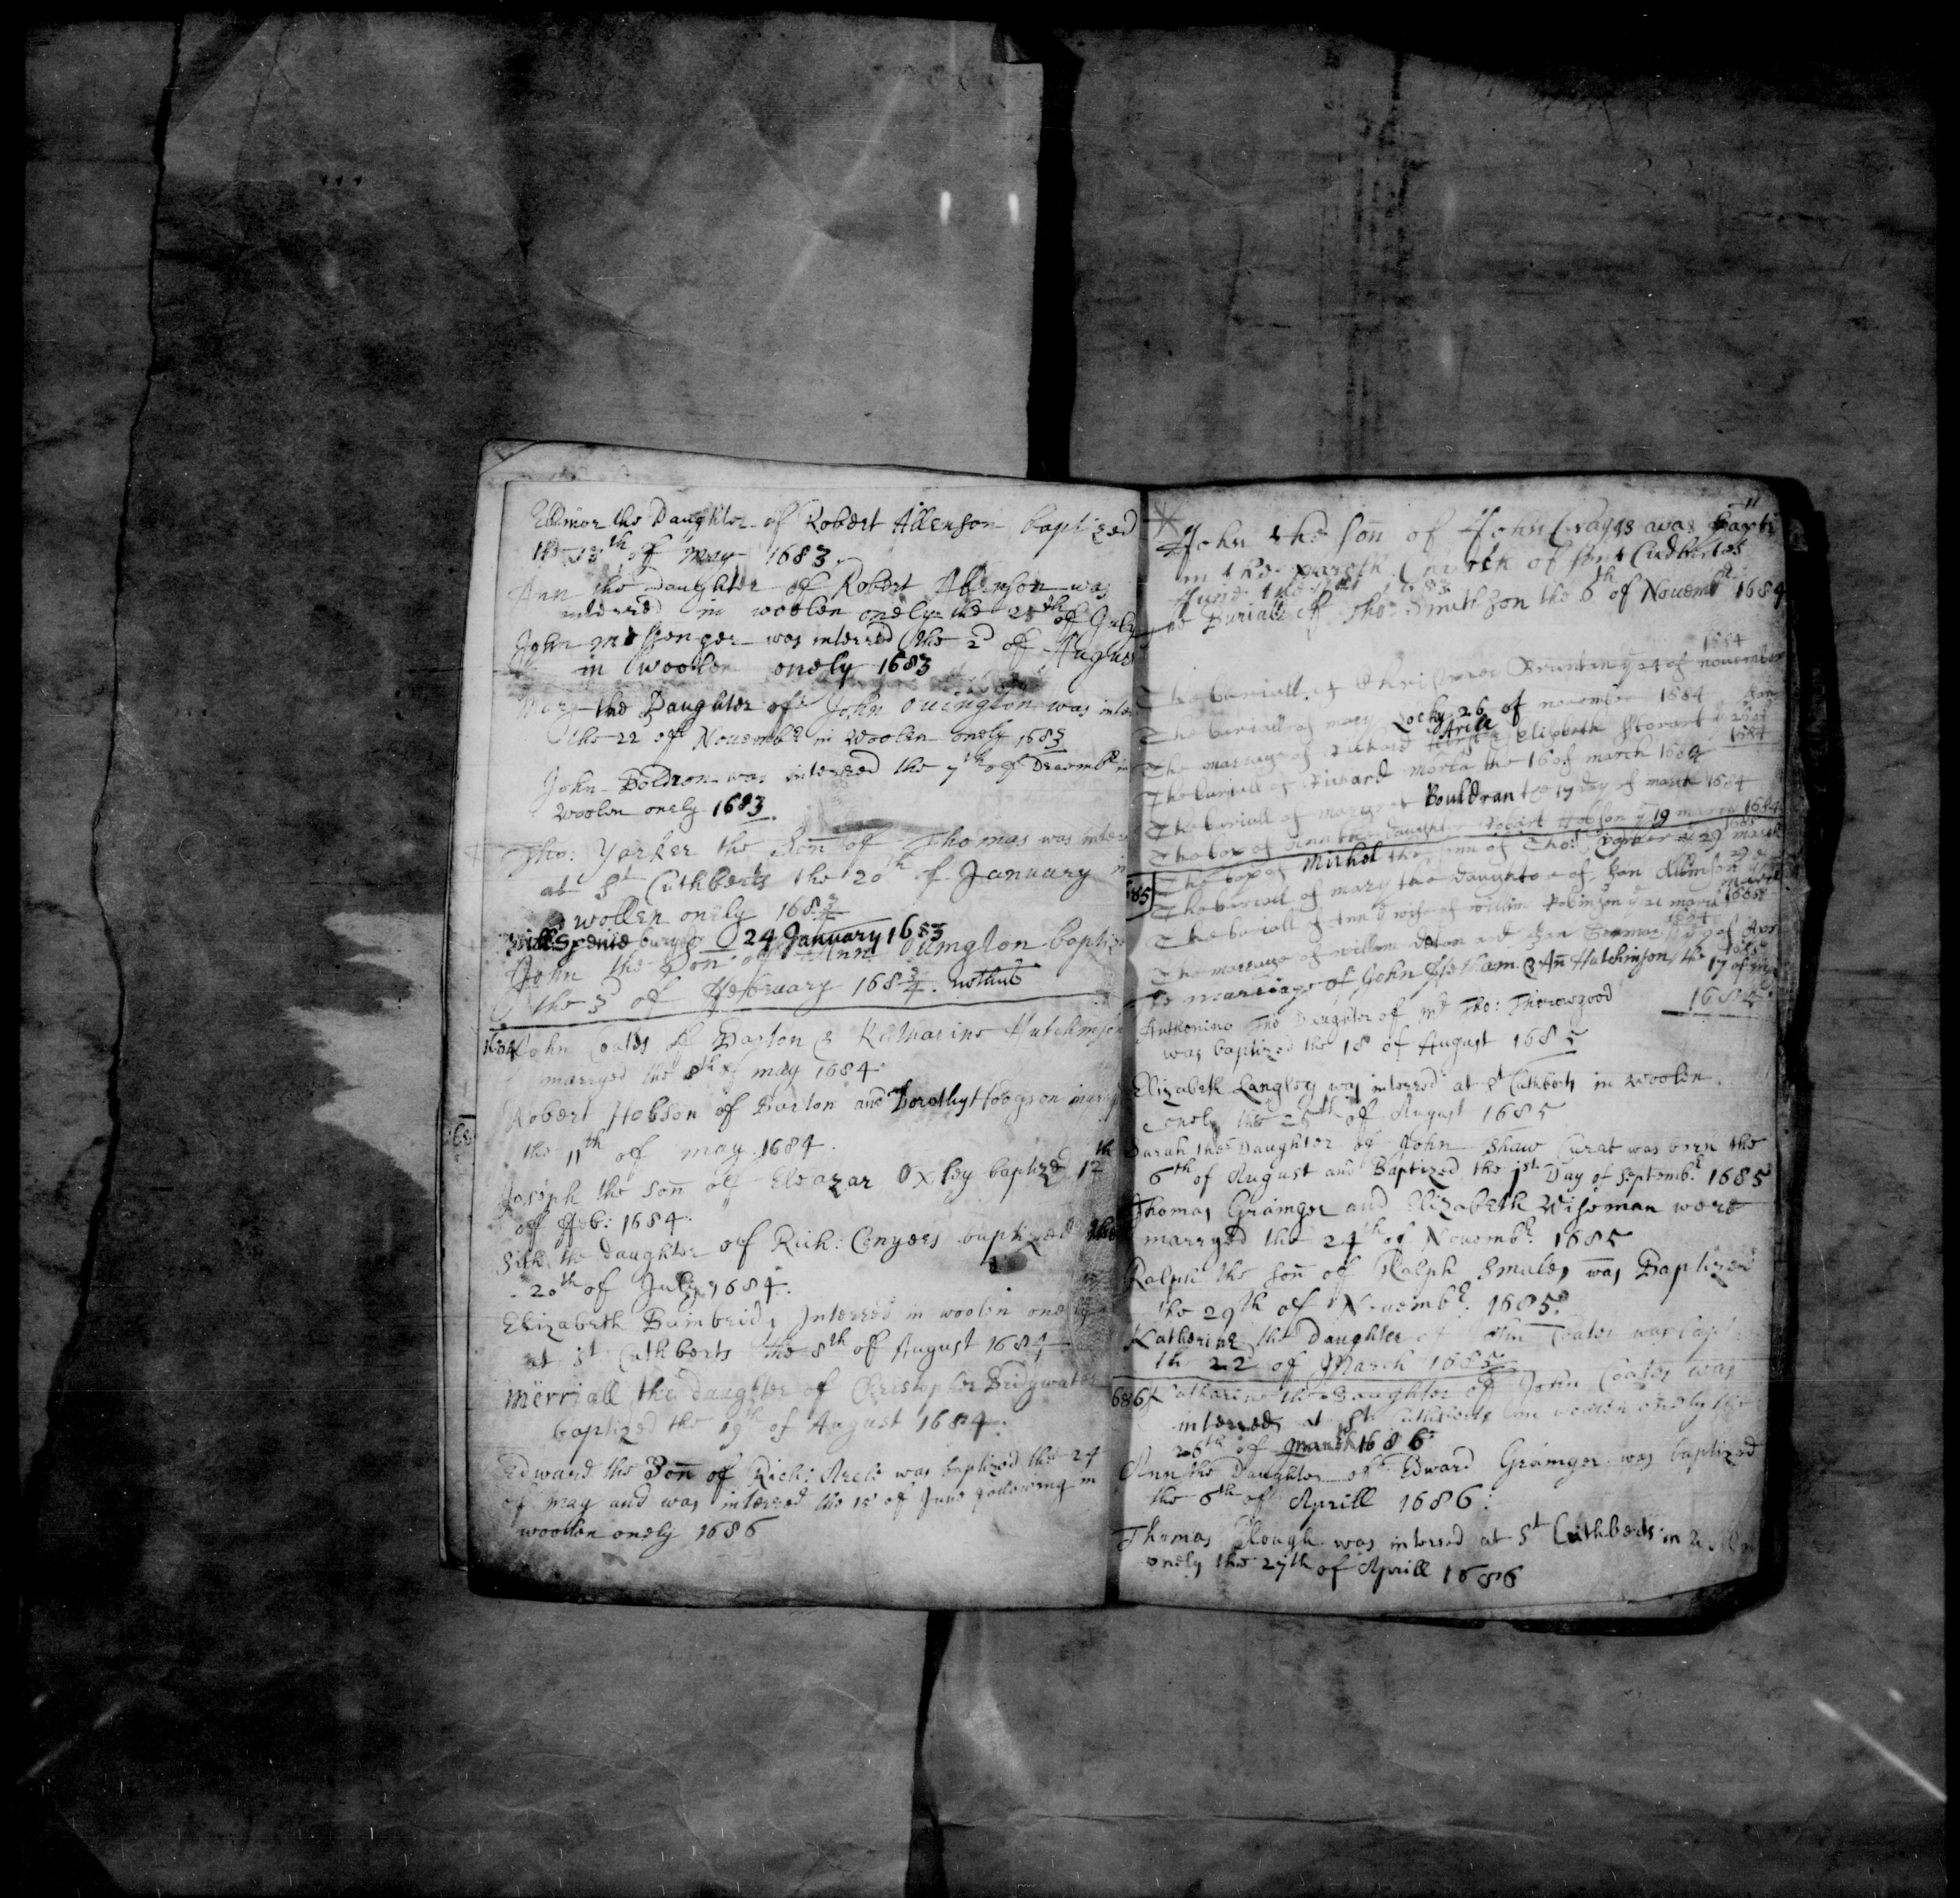 Ellinor the Daughter of Robert Allenson baptized
the 13th of May 1683.
Ann the Daughter of Robert Allenson was
interred in woolen onely the 28th of July
John Messenger was interred the 2d of August
in woolen onely 1683
Mary the Daughter of John Ovington was inter
the 22 of Novembr in Woolen onely 1683
John Boldron was interred the 7th of Decembr in
Woolen onely 1683.
Tho: Yorker the Son of Thomas was interr
at St Cuthberts the 20th of January in
wollen onely 1683/4
buryed 24 January 1683
John the Son of Ann Ovington baptiz
the 3d of February 1683/4. nothus
1684 John Coates of Barton & Katharine Hutchinson
marryed the 8th of may 1684
Robert Hobson of Barton and Dorothy Hodgson marry
the 11th of may 1684.
Joseph the Son of Eleazar Oxley baptized 12th
of Feb: 1684.
the daughter of Rich: Conyers baptized the
20th of July 1684.
Elizabeth Interred in woolen onely
at St Cuthberts the 8th of August 1684
Merriall the daughter of Christopher Bridgwater
baptized the 19th of August 1684.
Edward the Son of Rich: Arele was baptized the 24
of may and was interred the 15 of June following in
woollen onely 1686
11
John the son of John Craggs was bapti
in the parish Church of Cudbertes
1683
Buriall of Tho: Smithson the 6th of Novembr 1684
1684
The buriall of Brunton ye 24 of november
The buriall of mary 26 of november 1684
The marriage of Richard Arele & Elisbeth
The buriall of Richard the 16 of march 1684 1684
The buriall of margret Bouldran the 17 day of march 1684
The of Ann the daughter Robert Hobson ye 19 march 1684
1685
The bap of Michel the sonn of Tho: 29 march
685 The buriall of mary the daughter of Allinson
The buriall of Ann ye wife of william Robinson ye march 1685
The marriage of william and
The marriage of John & An Hutchinson the 17 of
1684
Anthonina The Daughter of Mr Tho: Thorowgood
was baptized the 18 of August 1685
Elizabeth Langley was interred at St Cuthberts in woolen
onely the 25th of August 1685
Sarah the Daughter of John Shaw Curat was born the
6th of August and Baptized the 1st Day of Septembr 1685
Thomas Grainger and Elizabeth Wiseman were
marryed the 24th of Novembr 1685
Ralph the son of Ralph Smales was Baptized
the 29th of Novembr 1685.
Katherine the Daughter of John Coates was bapt
the 22 of March 1685
686 Katharine the Daughter of John Coates was
interred at St Cuthberts in woolen onely the
26th of March 1686
Ann the Daughter of Edward Grainger was baptized
the 6th of Aprill 1686.
Thomas Clough was interred at St Cuthberts in
onely the 27th of Aprill 1686